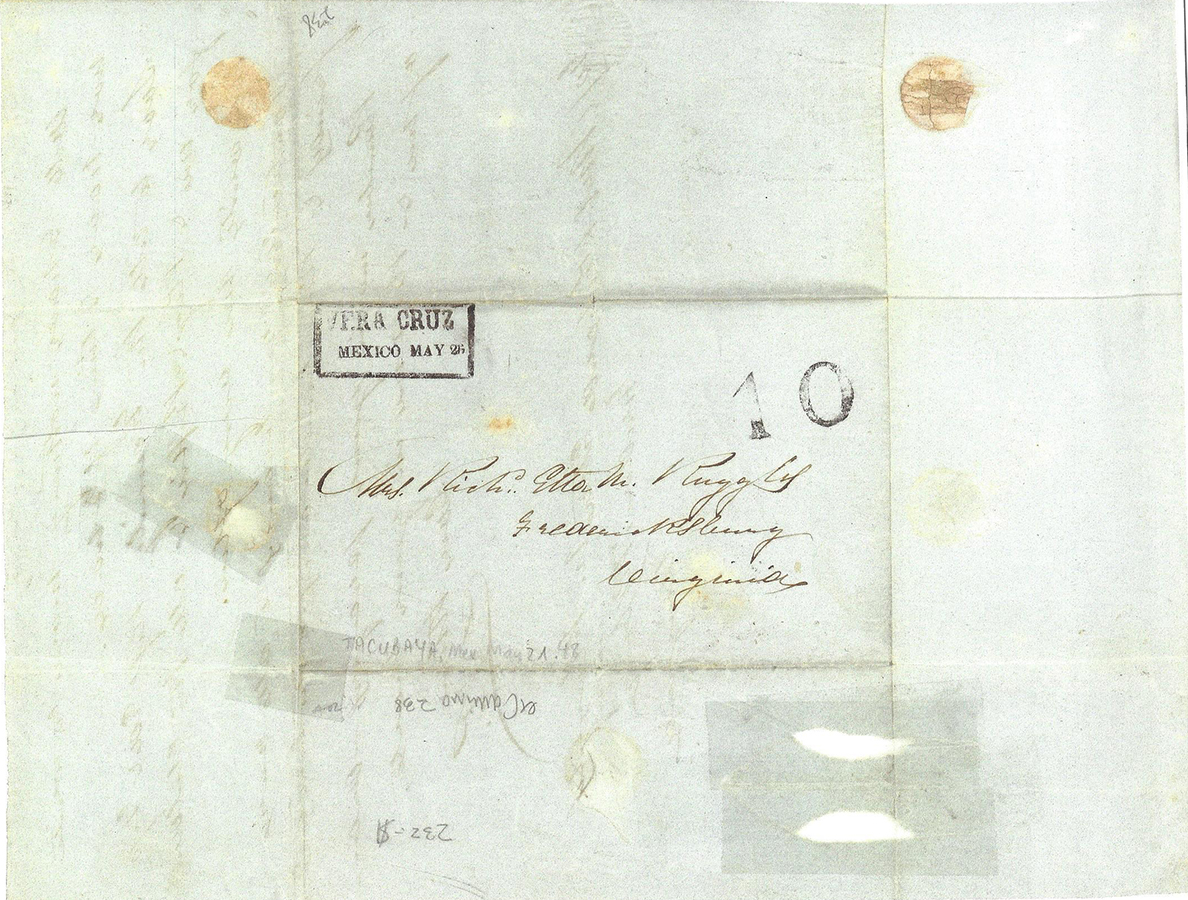 VERA CRUZ
MEXICO MAY 25
10
Mrs. Richd. Etta M. Ruggles
Fredericksburg
Virginia
TACUBAYA, Mex May 21.48
el Camino 238
232-